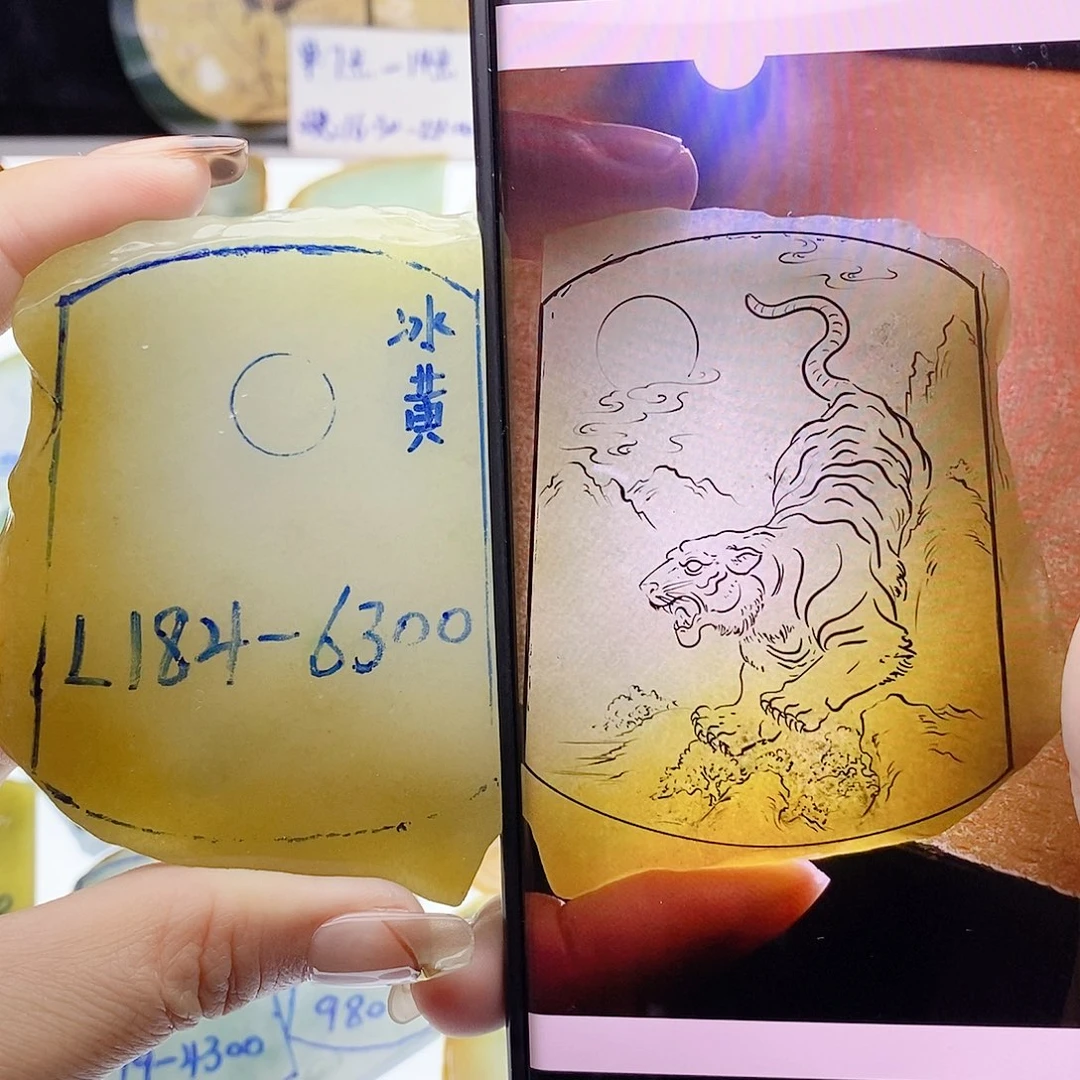 冰
黄
L184-6300
980
9-4300